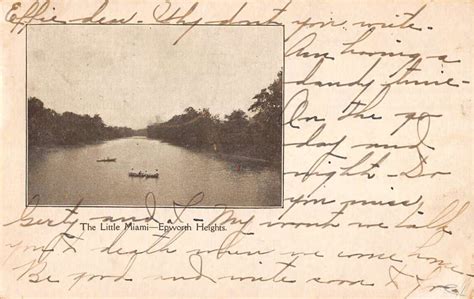 Effie dear - Why don't you write.
Am having a
dandy time -
On the go
day and
night - Do
you miss
Gerty and I - My wont we talk
The Little Miami—Epworth Heights.
you to death when we come home
Be good and write soon to